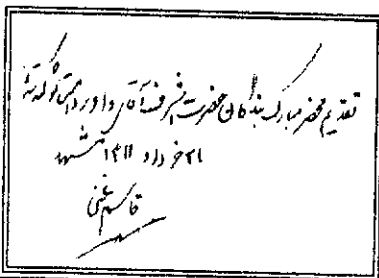 تقدیم محضر مبارک بندگان حضرت اشرف آقای داور دامت شوکته
۲۱ خرداد ۱۳۱۱ مشهد
قاسم غنی